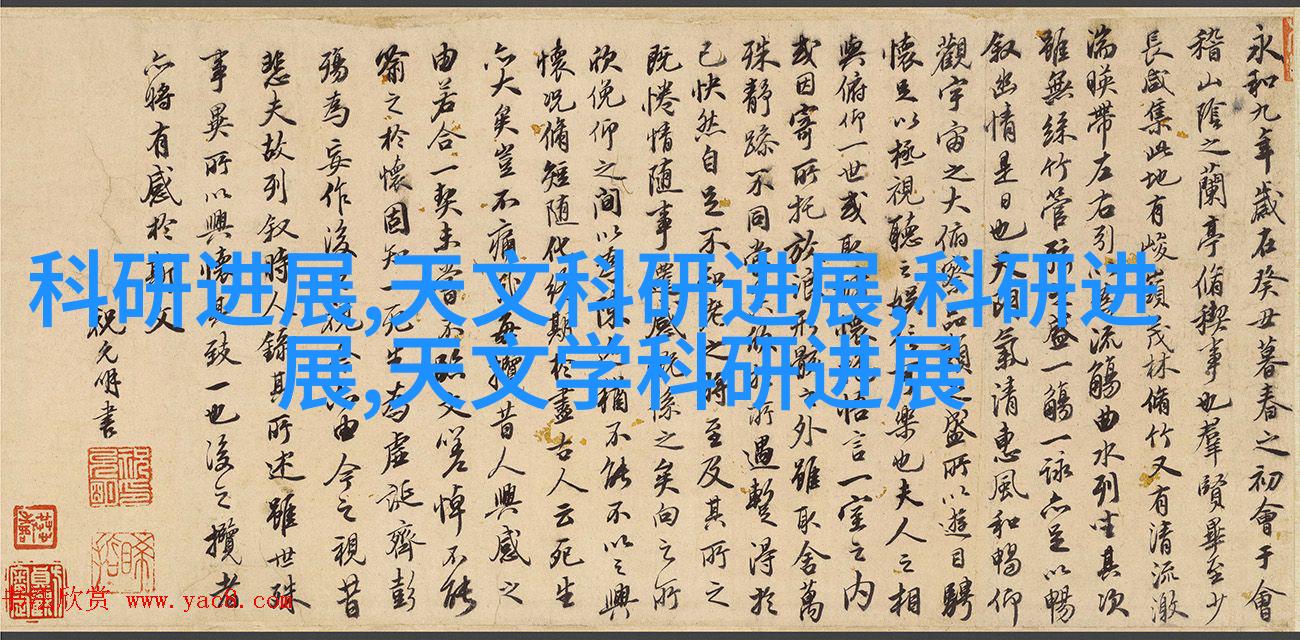 科研进展,天文科研进展,科研进
展,天文学科研进展
永和九年歲在癸丑暮春之初會于會
稽山陰之蘭亭脩禊事也羣賢畢至少
長咸集此地有峻嶺茂林脩竹又有清流激
湍暎帶左右引以為流觴曲水列坐其次
雖無絲竹管弦之盛一觴一詠亦足以暢
叙幽情是日也天朗氣清惠風和暢仰
觀宇宙之大俯察品類之盛所以遊目騁
懷足以極視聽之娛信可樂也夫人之相
與俯仰一世或取諸懷抱悟言一室之內
或因寄所托放浪形骸之外雖取舍萬
殊静躁不同當其欣於所遇暫得於
己快然自足不知老之將至及其所之
既惓情隨事遷感慨係之矣向之所
欣俛仰之間以為陳迹猶不能不以之興
懷況脩短隨化終期於盡古人云死生
亦大矣豈不痛哉每攬昔人興感之
由若合一契未嘗不臨文嗟悼不能
喻之於懷固知一死生為虛誕齊彭
殤為妄作後之視今亦由今之視昔
悲夫故列叙時人錄其所述雖世殊
事異所以興懷其致一也後之攬者
亦將有感於斯文
祝允明書
书法欣赏 www.yac8.com